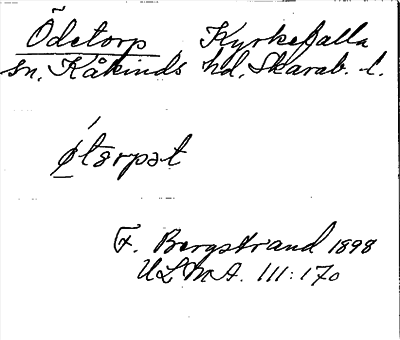 Ödetorp Kyrkefalla
sn, Kåkinds hd, Skarab. l.
ǿtarpət
F. Bergstrand 1898
ULMA. 111:170